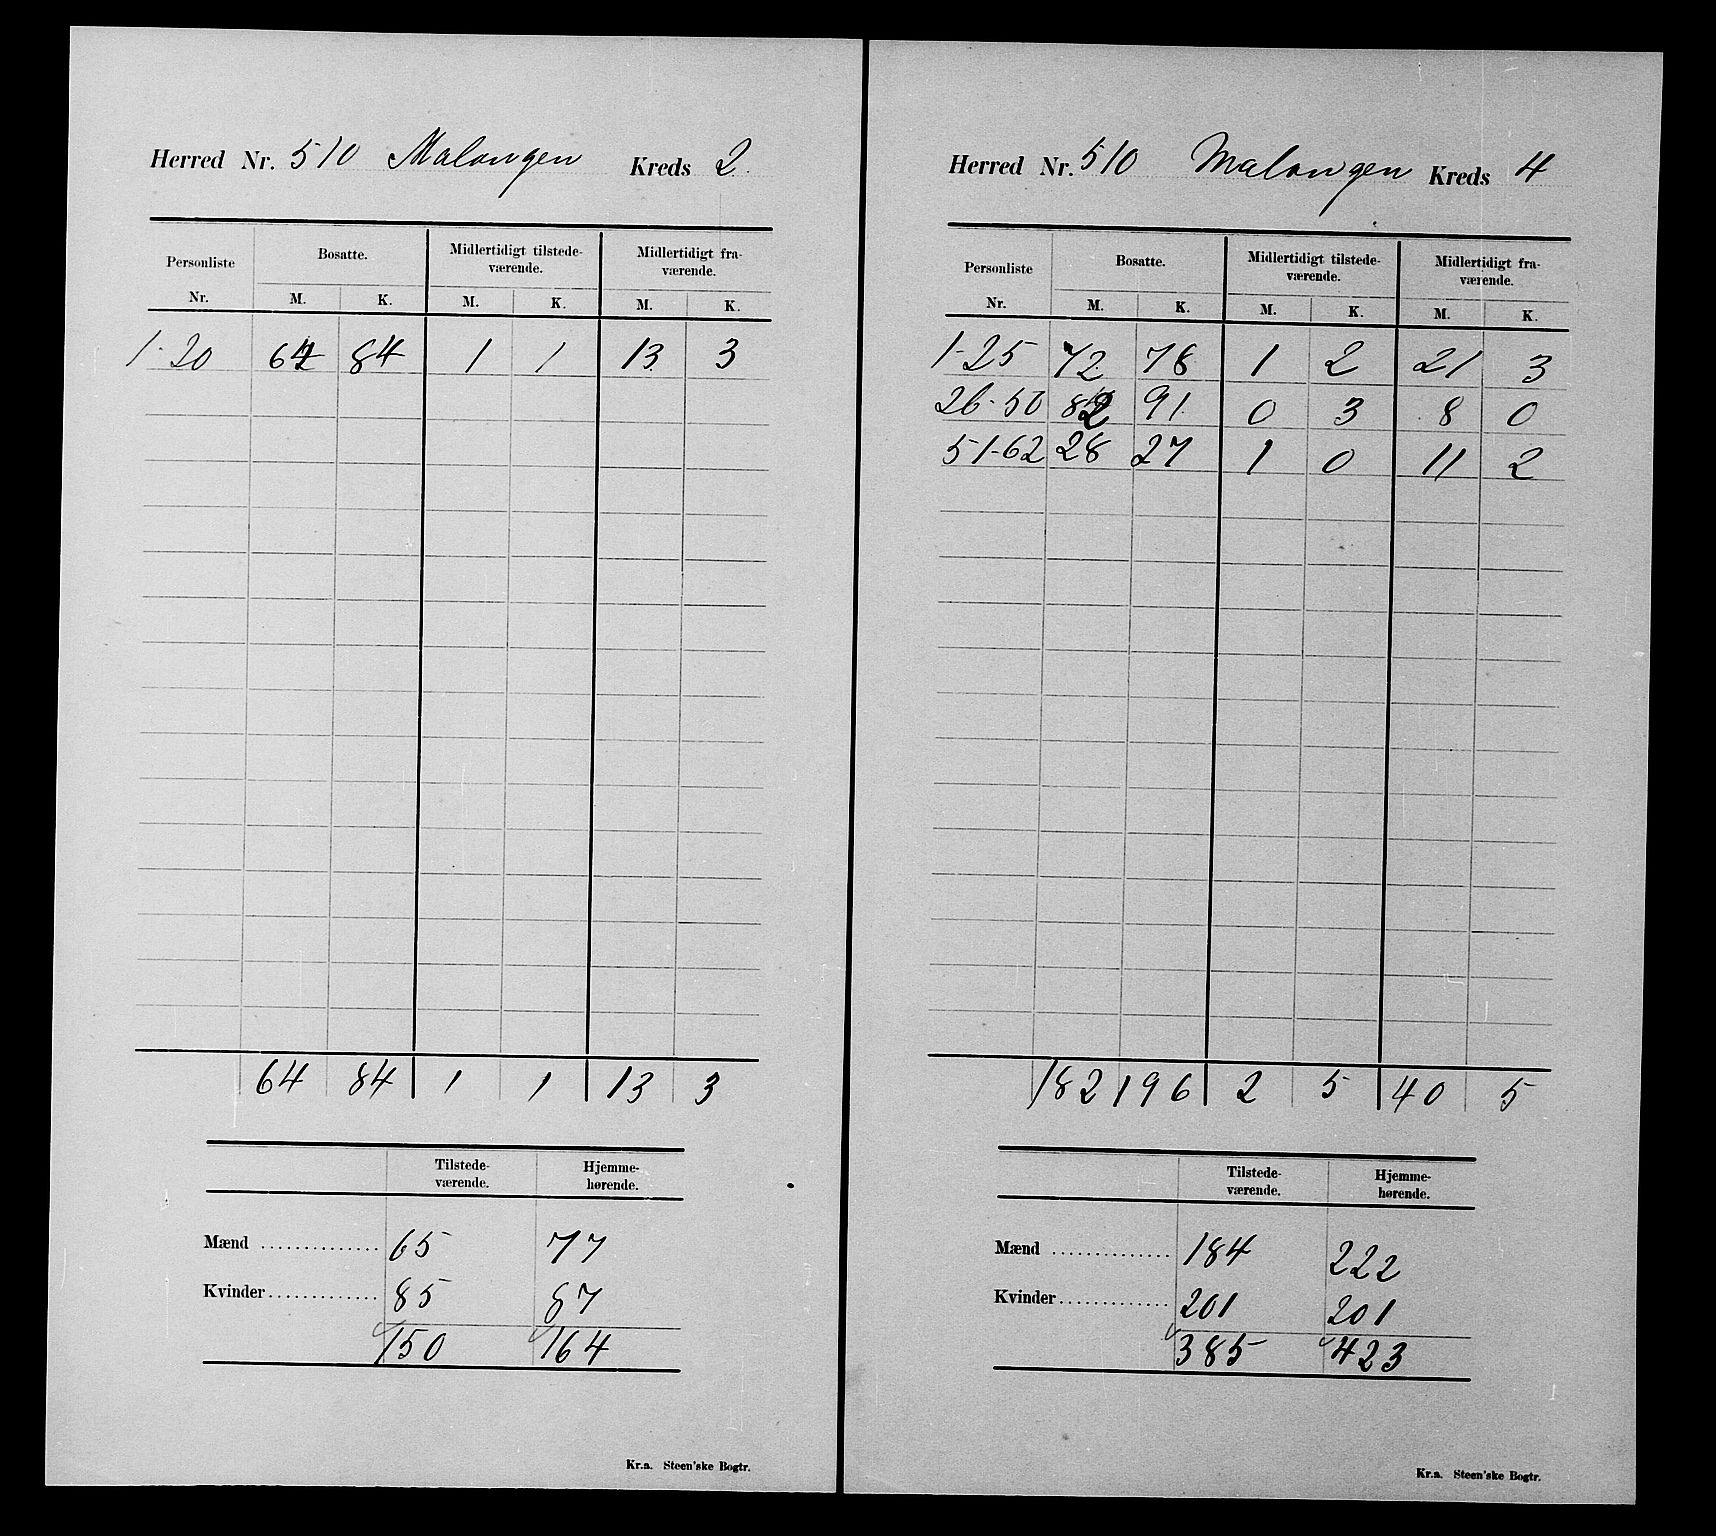 Herred Nr. 510 Malangen Kreds 2.
Personliste Bosatte. Midlertidigt tilstede- Midlertidigt fra-
værende. værende.
Nr. M. K. M. K. M. K.
1-20 64 84 1 1 13 3
64 84 1 1 13 3
Tilstede- Hjemme-
værende. hørende.
Mænd .............. 65 77
Kvinder ............. 85 87
150 164
Kr.a. Steen'ske Bogtr.
Herred Nr. 510 Malangen Kreds 4
Personliste Bosatte. Midlertidigt tilstede- Midlertidigt fra-
værende. værende.
Nr. M. K. M. K. M. K.
1-25 72 78 1 2 21 3
26-50 82 91 0 3 8 0
51-62 28 27 1 0 11 2
182 196 2 5 40 5
Tilstede- Hjemme-
værende. hørende.
Mænd .............. 184 222
Kvinder ............. 201 201
385 423
Kr.a. Steen'ske Bogtr.